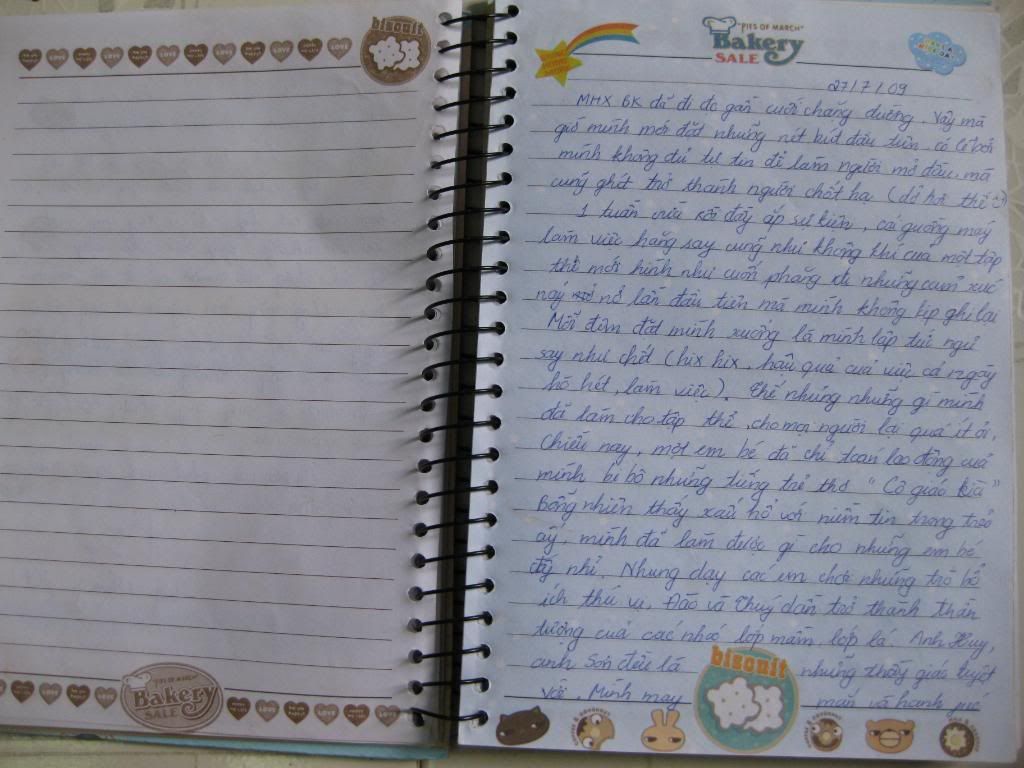 biscuit
LOVE LOVE LOVE LOVE
"PIES OF MARCH"
Bakery
SALE
27/7/09
MHX BK đã đi đc gần cuối chặng đường. Vậy mà
giờ mình mới đặt những nét bút đầu tiên, có lẽ bởi
mình không đủ tự tin để làm người mở đầu, mà
cũng ghét trở thành người chốt hạ (dở hơi thế
1 tuần vừa rồi đầy ắp sự kiện, cái guồng máy
làm việc hăng say cũng như không khí của một tập
thể mới hình như cuốn phăng đi những cảm xúc
nảy nở lần đầu tiên mà mình không kịp ghi lại
Mỗi đêm đặt mình xuống là mình lập tức ngủ
say như chết (hix hix, hậu quả của việc cả ngày
hò hét, làm việc). Thế nhưng những gì mình
đã làm cho tập thể, cho mọi người lại quá ít ỏi,
Chiều nay, một em bé đã chỉ toán lao động của
mình bi bô những tiếng trẻ thơ "Cô giáo kìa"
Bỗng nhiên thấy xấu hổ với niềm tin trong trẻo
ấy, mình đã làm được gì cho những em bé
đấy nhỉ. Nhưng dạy các em chơi những trò bổ
ích thú vị, Đào và Thuý dần trở thành thần
tượng của các nhóc lớp mầm, lớp lá. Anh Huy,
anh Sơn đều là những thầy giáo tuyệt
vời. Mình may mắn và hạnh phúc
biscuit
"PIES OF MARCH"
Bakery
SALE
LOVE LOVE LOVE